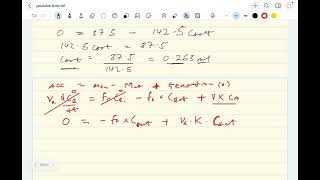 youtube-tutorial
0 = 87.5 - 142.5 Cout
142.5 Cout = 87.5
Cout = 87.5 / 142.5 = 0.263 ml
ACC = Min - Mout + Generation (0)
VR dCB / dt = f0CB0 - f0 × CBout + VKCA
0 = - f0 × CBout + VR . K . CAout